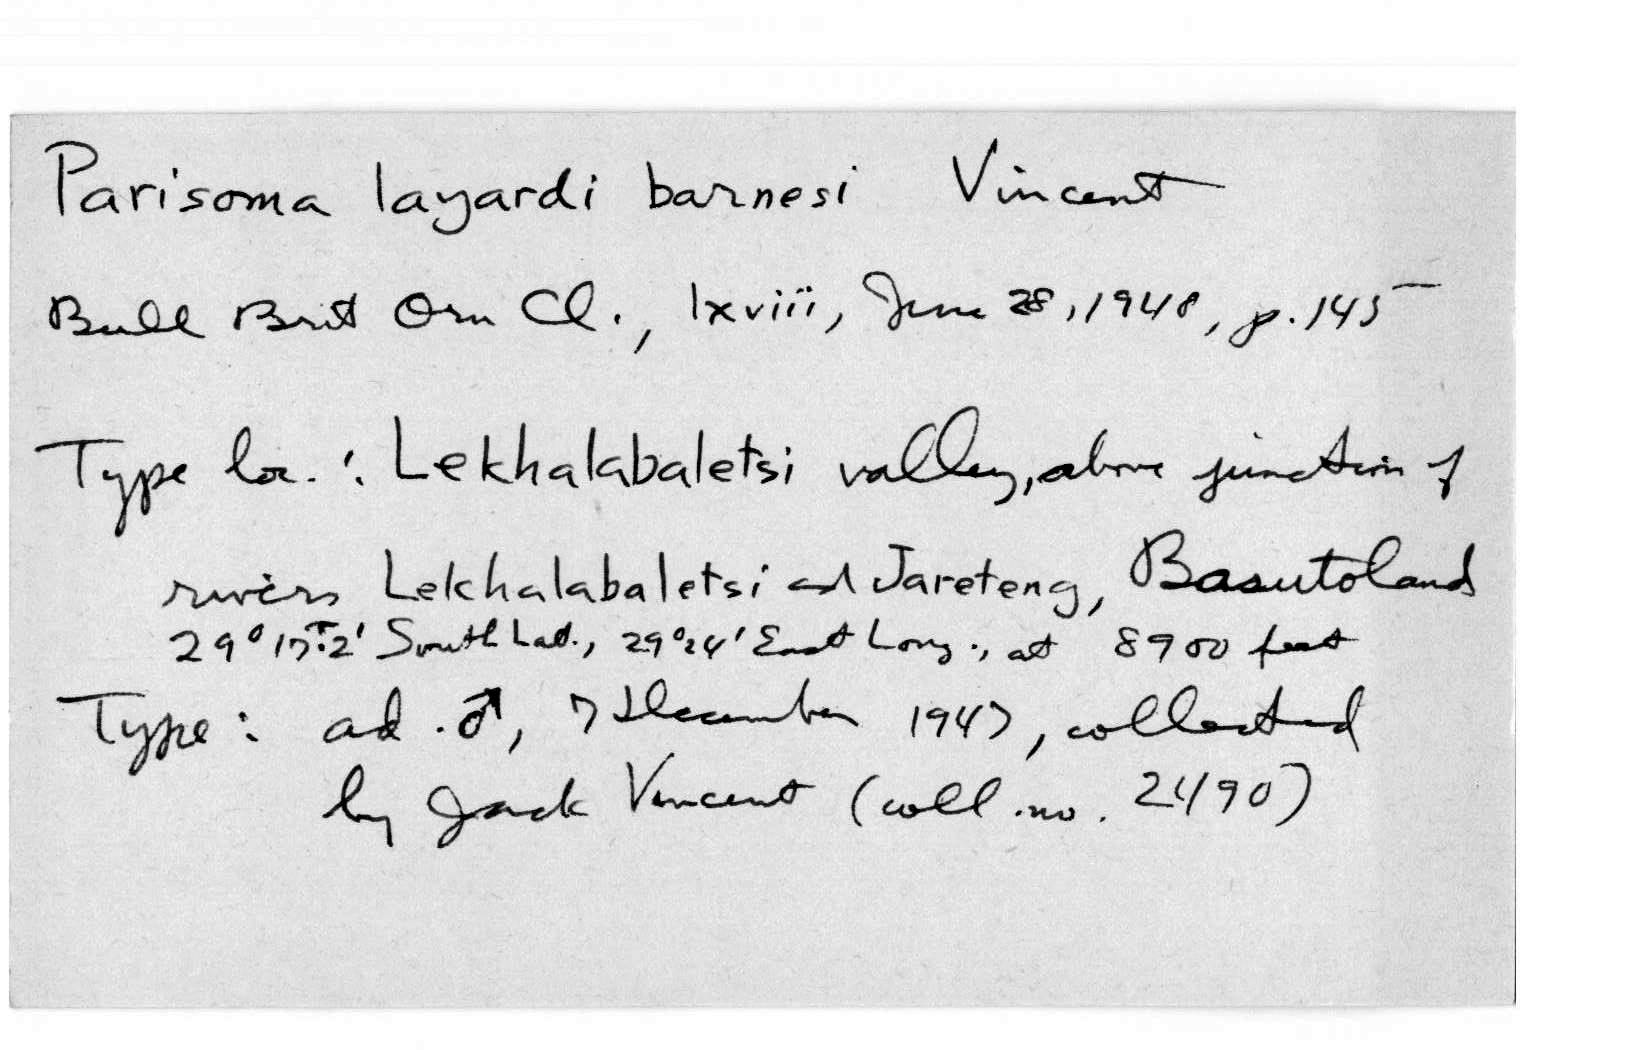 Parisoma layardi barnesi Vincent
Bull Brit Orn Cl., lxviii, June 28, 1948, p. 145
Type loc.: Lekhalabaletsi valley, above junction of
rivers Lekhalabaletsi and Jareteng, Basutoland
South Lat., 29°24' East Long., at 8900 feet
Type: ad. ♂, 7 December 1947, collected
by Jack Vincent (coll. no. 2490)